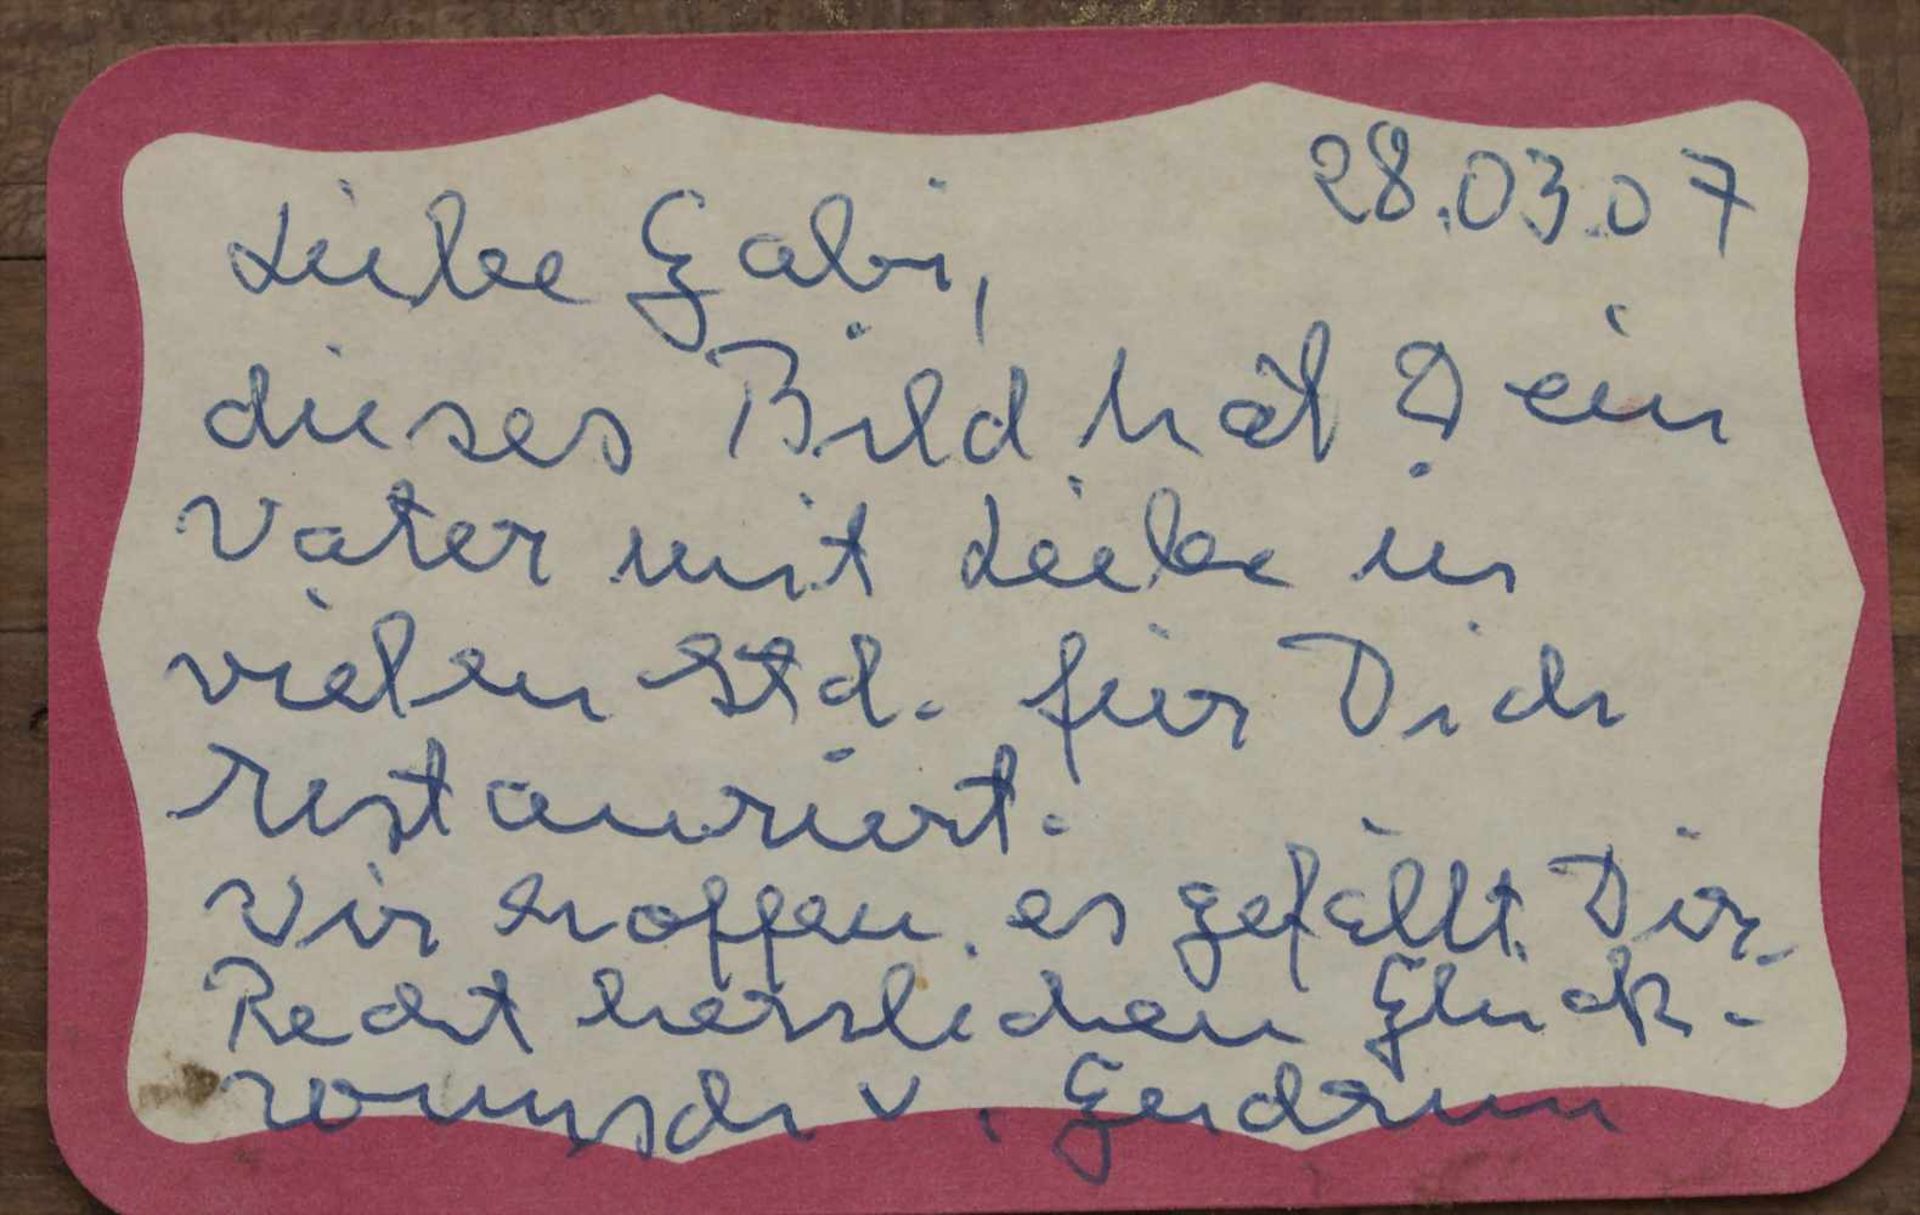 28.03.07
Liebe Gabi,
dieses Bild hat Dein
Vater mit Liebe in
vielen Std. für Dich
restauriert.
Wir hoffen, es gefällt Dir.
Recht herzlichen Glück-
wunsch v.